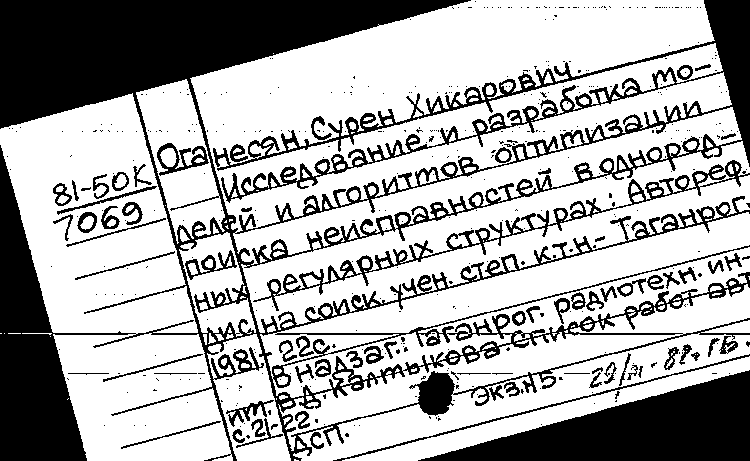 81-50К
7069
Оганесян, Сурен Хикарович.
Исследование и разработка мо-
делей и алгоритмов оптимизации
поиска неисправностей в однород-
ных регулярных структурах: Автореф.
дис. на соиск. учен. степ. к.т.н.- Таганрог,
1981.- 22с.
В надзаг.: Таганрог. радиотехн. ин-
т им. В.Д. Калмыкова. Список работ авт.
с. 21-22.
ДСП. Экз.№5.